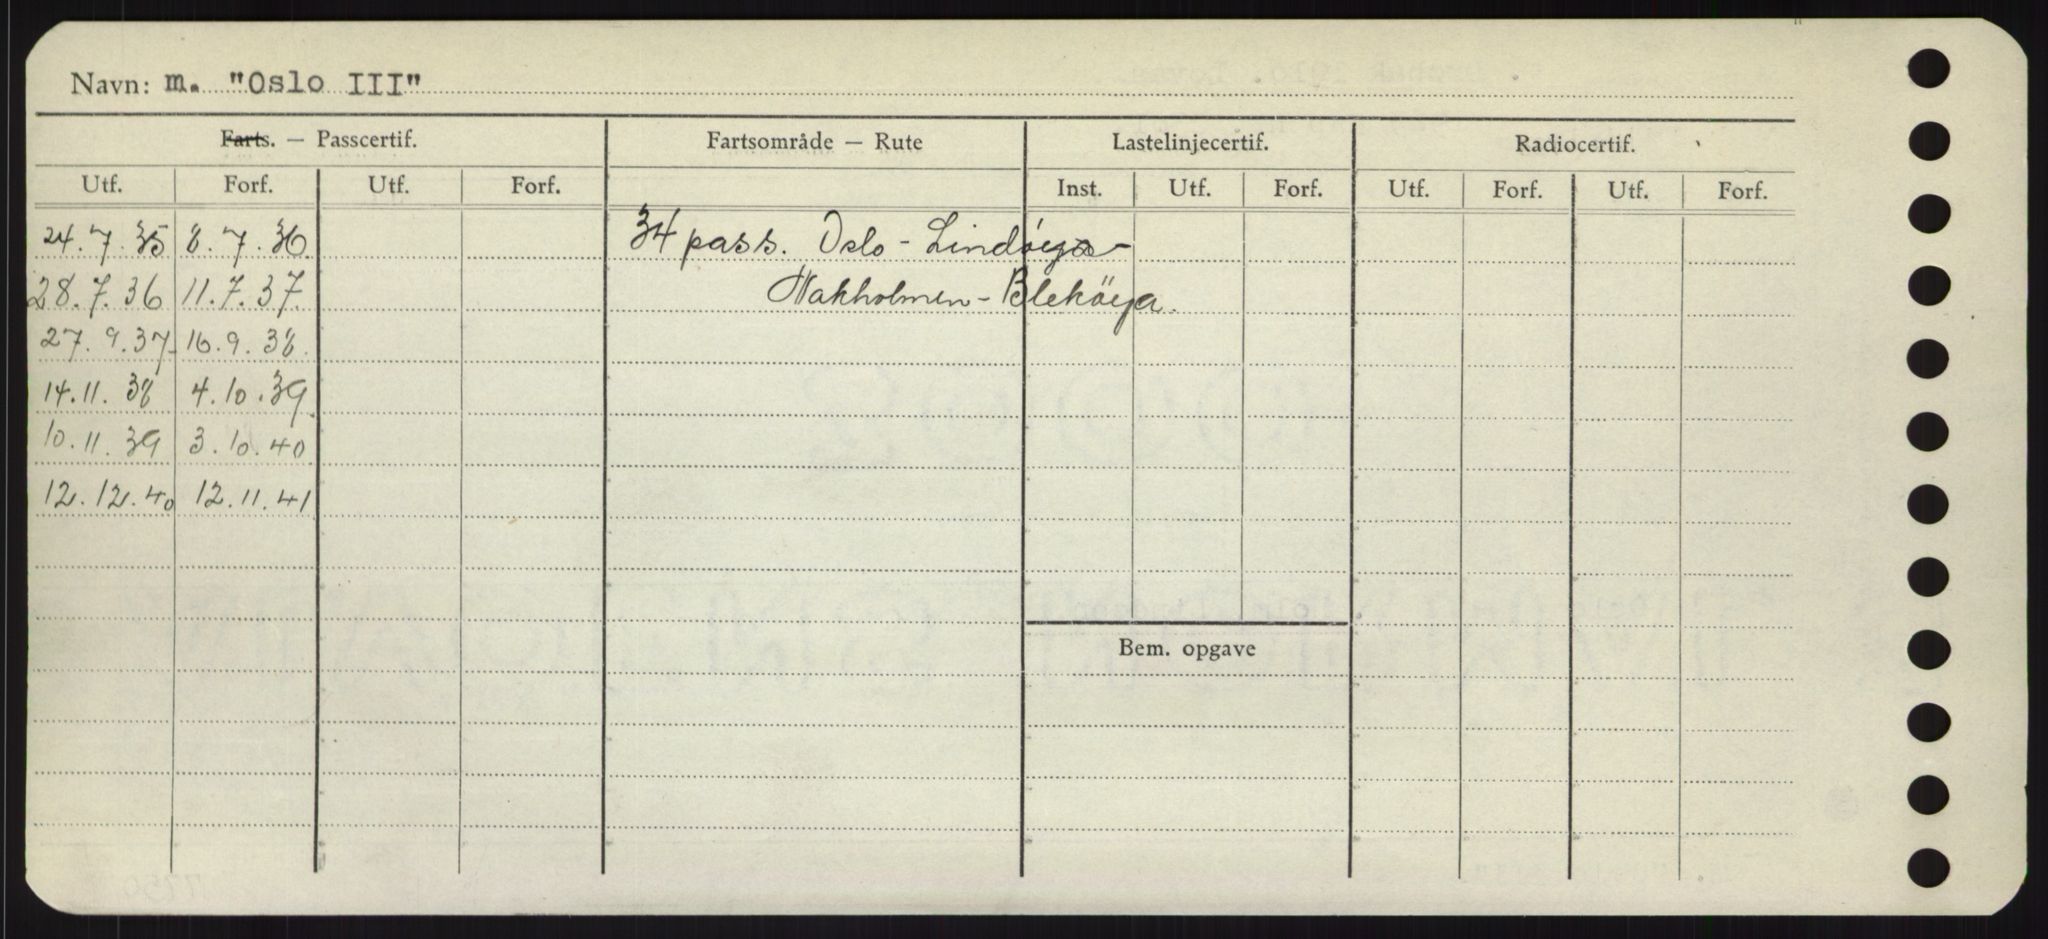 Navn: m. "Oslo III"
Farts. — Passcertif. Fartsområde — Rute Lastelinjecertif. Radiocertif.
Utf. Forf. Utf. Forf. Inst. Utf. Forf. Utf. Forf. Utf. Forf.
24.7.35 8.7.36 34 pass. Oslo - Lindøya -
28.7.36 11.7.37. Nakholmen - Blekøya.
27.9.37. 16.9.38.
14.11.38 4.10.39
10.11.39 3.10.40
12.12.40 12.11.41
Bem. opgave